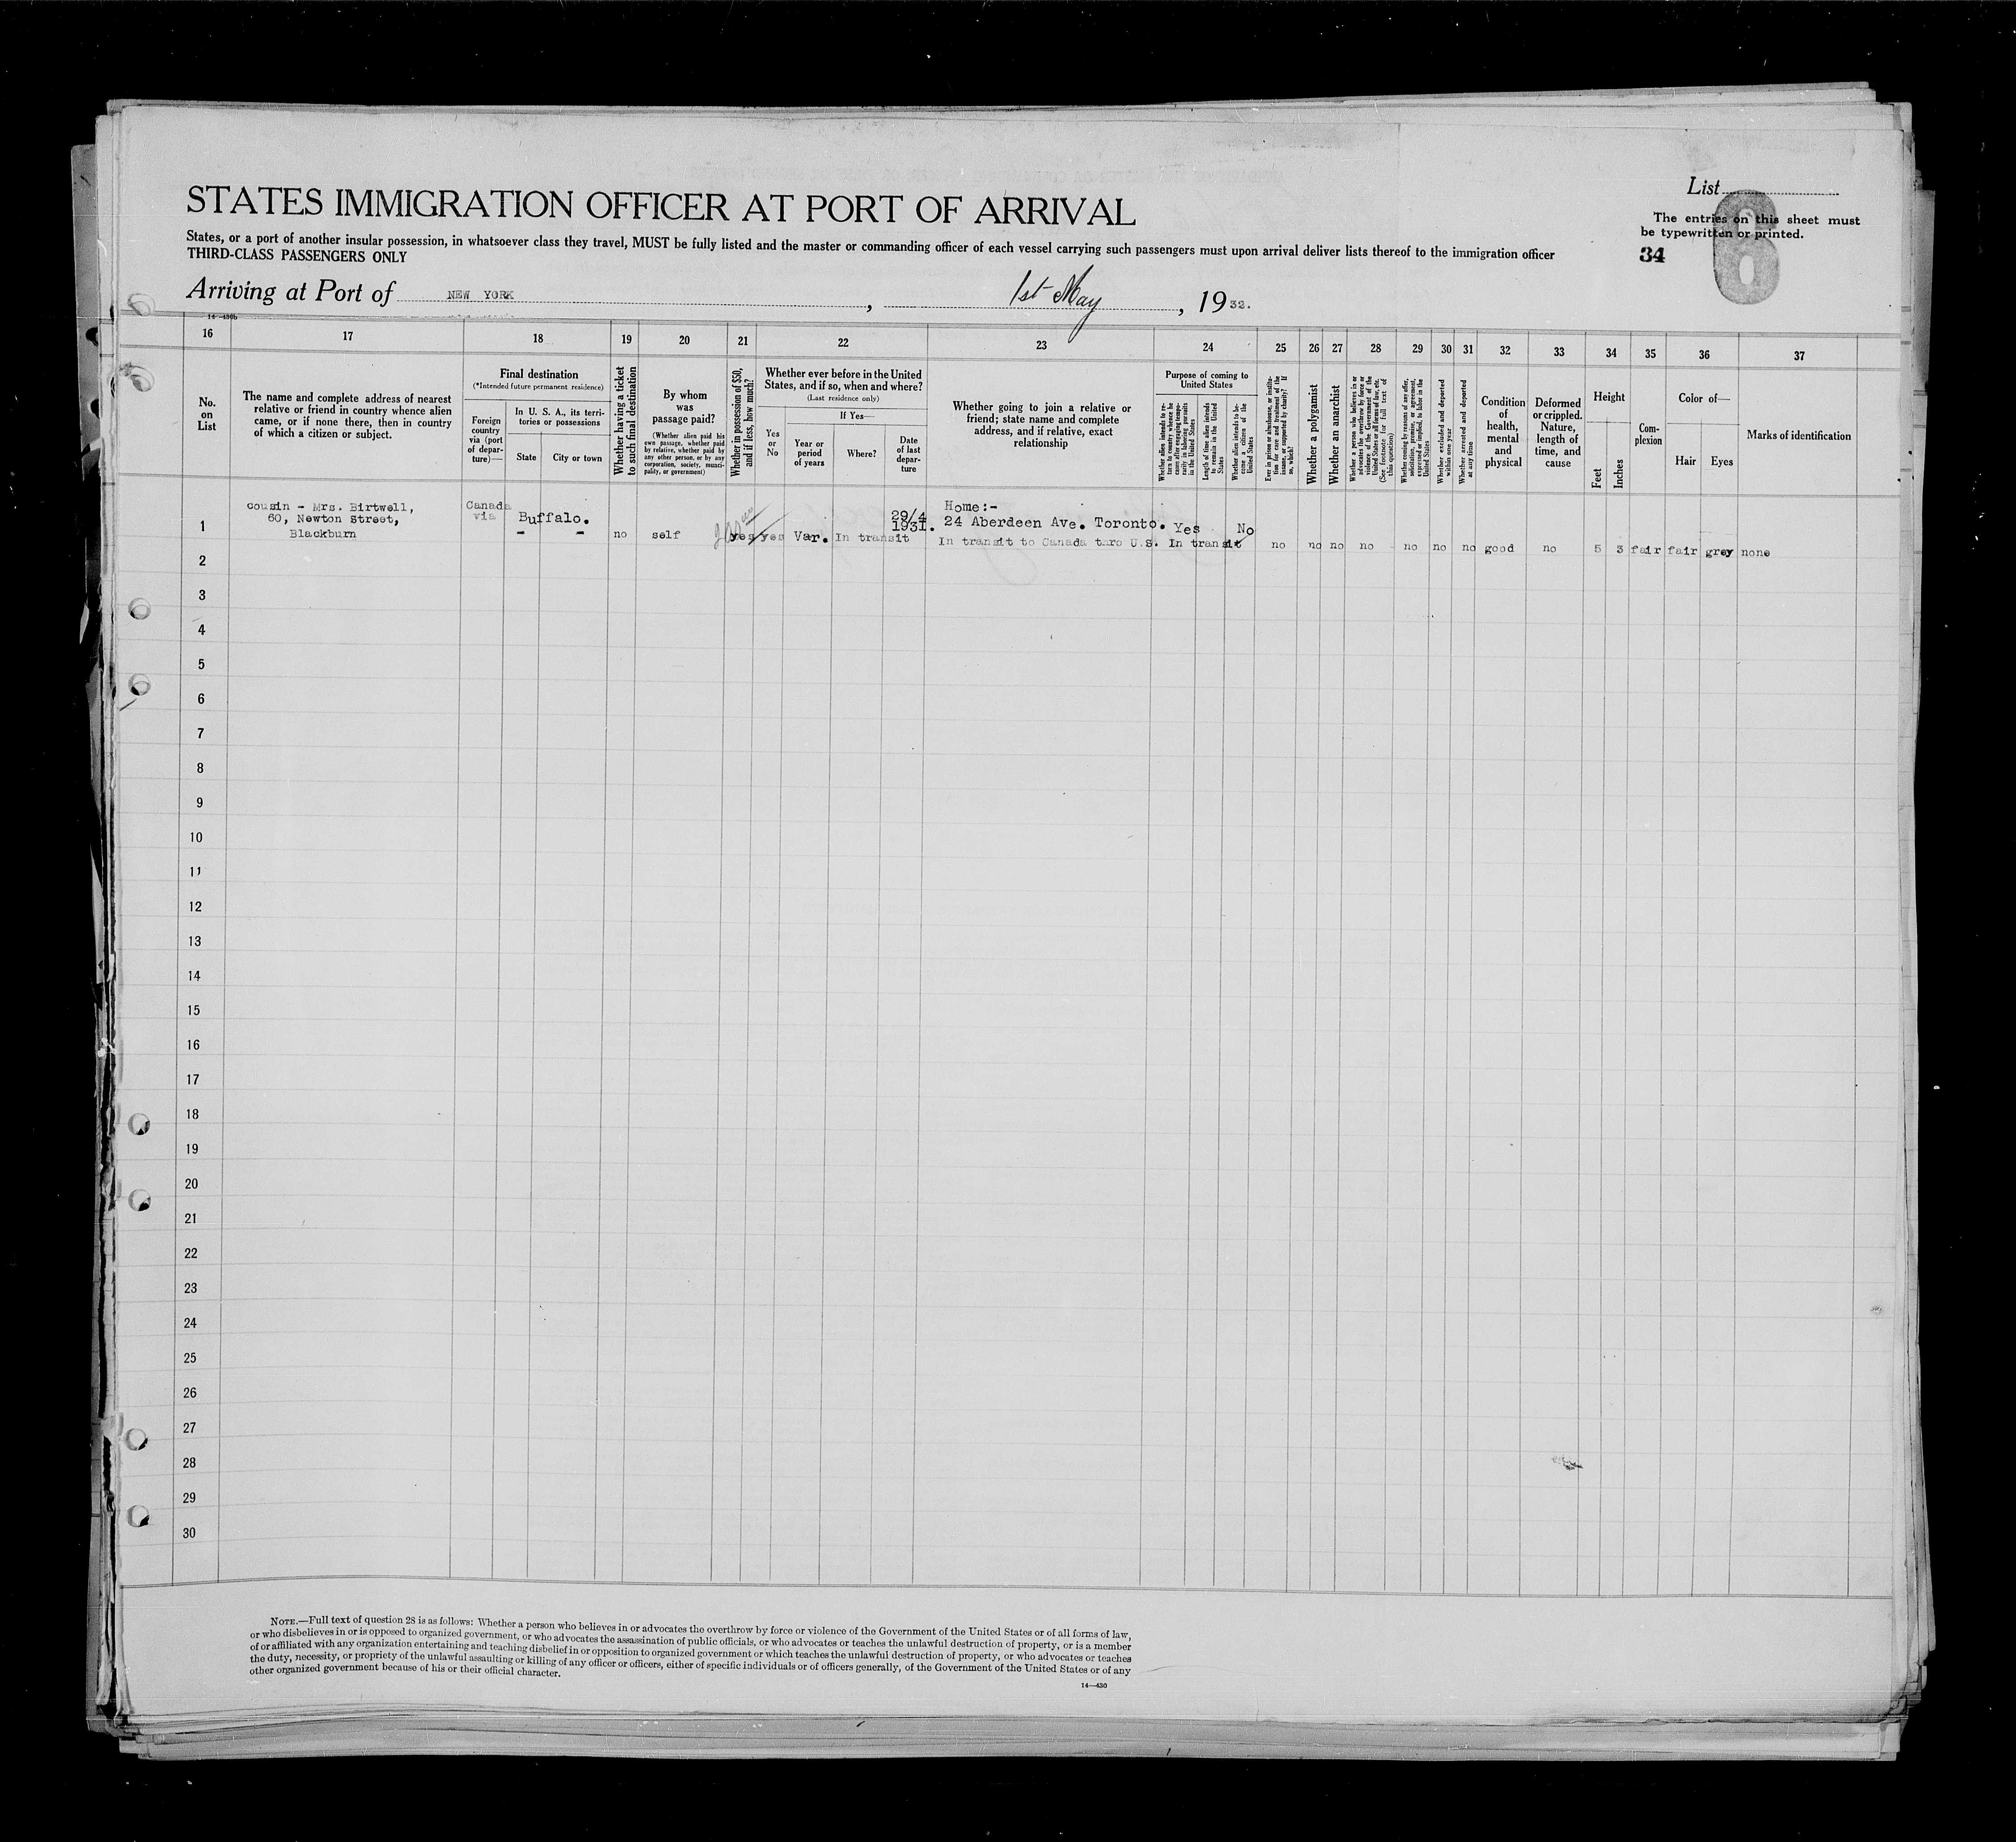 STATES IMMIGRATION OFFICER AT PORT OF ARRIVAL
List
6
The entries on this sheet must
be typewritten or printed.
34
States, or a port of another insular possession, in whatsoever class they travel, MUST be fully listed and the master or commanding officer of each vessel carrying such passengers must upon arrival deliver lists thereof to the immigration officer
THIRD-CLASS PASSENGERS ONLY
Arriving at Port of NEW YORK, 1st May, 1932.
16 17 18 19 20 21 22 23 24 25 26 27 28 29 30 31 32 33 34 35 36 37
No.
on
List
The name and complete address of nearest
relative or friend in country whence alien
came, or if none there, then in country
of which a citizen or subject.
Final destination
(*Intended future permanent residence)
Foreign
country
via (port
of depar-
ture)—
In U. S. A., its terri-
tories or possessions
State
City or town
Whether having a ticket
to such final destination
By whom
was
passage paid?
(Whether alien paid his
own passage, whether paid
by relative, whether paid by
any other person, or by any
corporation, society, munici-
pality, or government)
Whether in possession of $50,
and if less, how much?
Whether ever before in the United
States, and if so, when and where?
(Last residence only)
Yes
or
No
If Yes—
Year or
period
of years
Where?
Date
of last
depar-
ture
Whether going to join a relative or
friend; state name and complete
address, and if relative, exact
relationship
Purpose of coming to
United States
Whether alien intends to re-
turn to country whence he
came after engaging tempo-
rarily in laboring pursuits
in the United States
Length of time alien intends
to remain in the United
States
Whether alien intends to be-
come a citizen of the
United States
Ever in prison or almshouse, or institu-
tion for care and treatment of the
insane, or supported by charity? If
so, which?
Whether a polygamist
Whether an anarchist
Whether a person who believes in or
advocates the overthrow by force or
violence of the Government of the
United States or all forms of law, etc.
(See footnote for full text of
this question)
Whether coming by reason of any offer,
solicitation, promise, or agreement,
expressed or implied, to labor in the
United States
Whether excluded and deported
within one year
Whether arrested and deported
at any time
Condition
of
health,
mental
and
physical
Deformed
or crippled.
Nature,
length of
time, and
cause
Height
Feet
Inches
Com-
plexion
Color of—
Hair
Eyes
Marks of identification
cousin - Mrs. Birtwell,
60, Newton Street,
Blackburn
Canada
via
Buffalo.
- -
no
self
yes
yes
Var.
In transit
29/4
1931.
Home:-
24 Aberdeen Ave. Toronto.
In transit to Canada thro U.S.
Yes No
In transit
no no no no no no no good no 5 3 fair fair grey none
1
2
3
4
5
6
7
8
9
10
11
12
13
14
15
16
17
18
19
20
21
22
23
24
25
26
27
28
29
30
NOTE.—Full text of question 28 is as follows: Whether a person who believes in or advocates the overthrow by force or violence of the Government of the United States or of all forms of law,
or who disbelieves in or is opposed to organized government, or who advocates the assassination of public officials, or who advocates or teaches the unlawful destruction of property, or is a member
of or affiliated with any organization entertaining and teaching disbelief in or opposition to organized government or which teaches the unlawful destruction of property, or who advocates or teaches
the duty, necessity, or propriety of the unlawful assaulting or killing of any officer or officers, either of specific individuals or of officers generally, of the Government of the United States or of any
other organized government because of his or their official character.
14—430